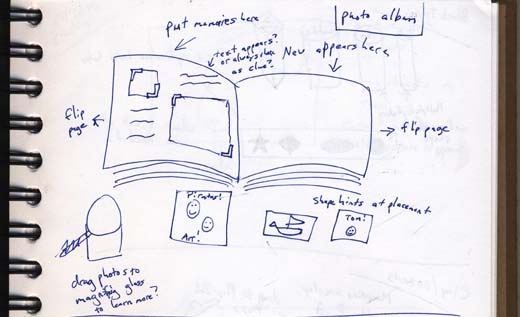 photo album
put memories here
text appears?
or always there
as clue?
New appears here
flip
page
flip page
Pirates!
Art!
shape hints at placement
Tom!
drag photos to
magnifying glass
to learn more?